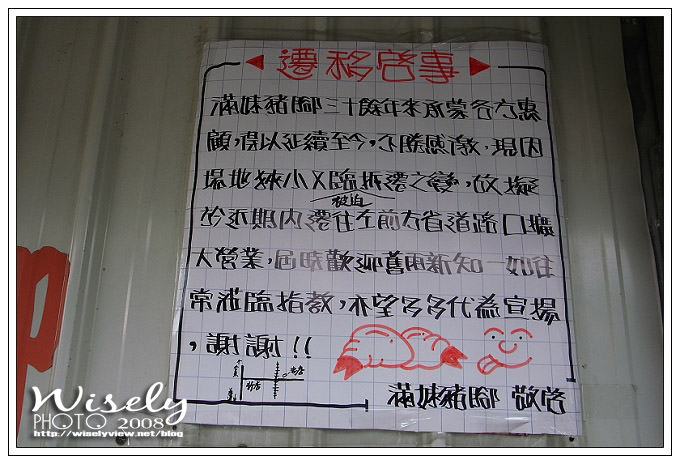 ◀ 遷移啓事 ▶
滿妹豬腳三十餘年來承蒙各方惠
顧,得以延續至今,不勝感激,現因
場地狹小又臨拆遷之變,故擬
被迫
於近期內遷往至前方省道路口擴
大營業,屆時歡迎舊雨新知一如往
常蒞臨指教,亦望多多代為宣揚
,謝謝!!
滿妹豬腳 敬啓
Wisely
PHOTO 2008
http://wiselyview.net/blog